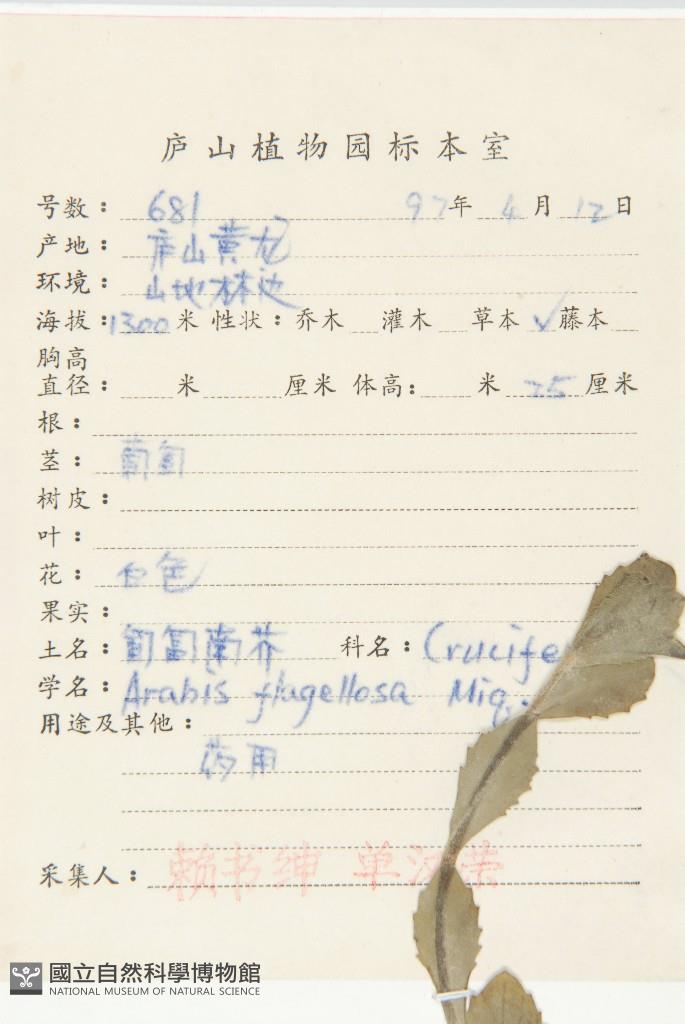 庐山植物园标本室
号数： 681 97年 4月 12日
产地： 庐山黄龙
环境： 山地林边
海拔： 1300 米 性状： 乔木 灌木 草本 ✓ 藤本
胸高
直径： 米 厘米 体高： 米 25 厘米
根：
茎： 匍匐
树皮：
叶：
花： 白色
果实：
土名： 匍匐南芥 科名： Crucife
学名： Arabis flagellosa Miq.
用途及其他：
药用
采集人： 赖书绅 单汉荣
國立自然科學博物館
NATIONAL MUSEUM OF NATURAL SCIENCE